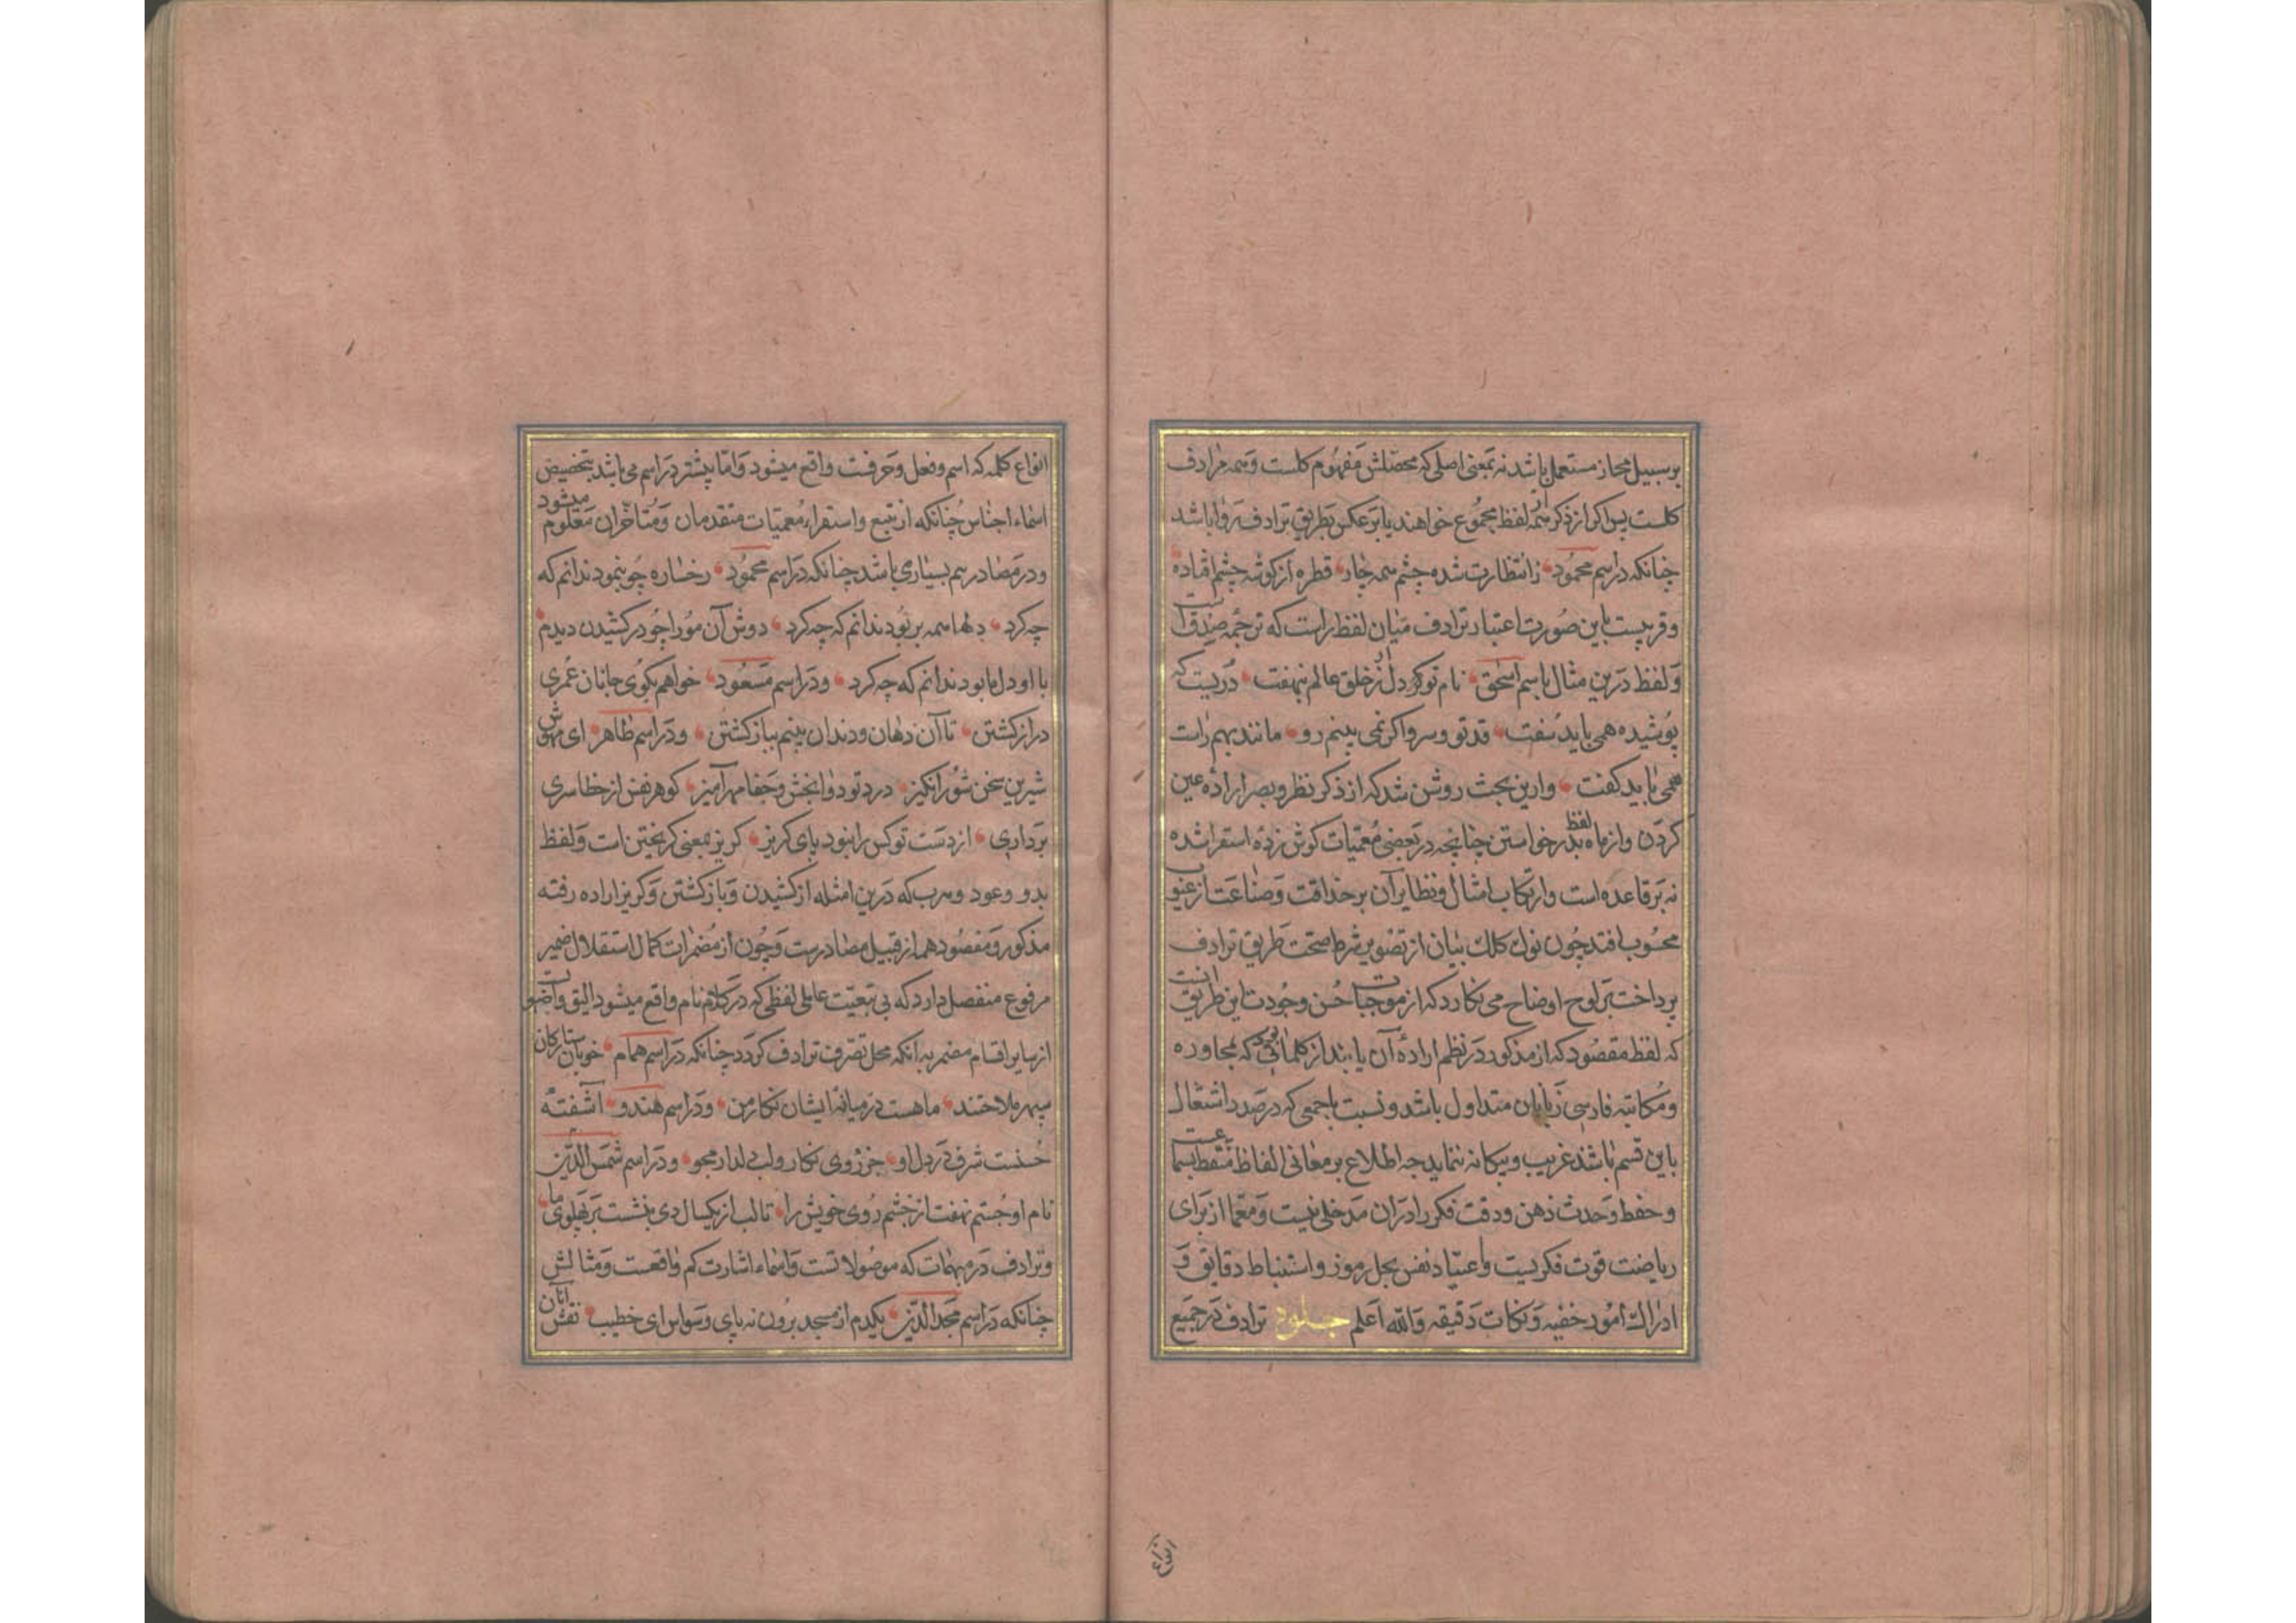 بر سبیل مجاز مستعمل باشد نه بمعنی اصلی که محصّلش مفهوم کلست و همه مرادف
کلست پس اکر از ذکر همه لفظ مجموع خواهند یا بر عکس بطریق ترادف روا باشد
چنانکه در اسم محمود زانتظارت شده چشم همه چار قطره از کوشه چشم افتاده
و قریبست باین صورت اعتبار ترادف میان لفظ راست که ترجمه صدق است
و لفظ درین مثال باسم اسحق نام تو کردل از خلق عالم بنهفت دریست که
پوشیده همی باید سفت قد تو و سرو اکر نمی بینم رو مانند بهم راست
همی باید کفت و ازین بحث روشن شد که از ذکر نظر و بصر اراده عین
کردن و از ماه لفظ بدر خواستن چنانچه در بعضی معمیات کوش زده استقرا شده
نه بر قاعده است و ارتکاب امثال و نظایر آن بر حذاقت و صناعت از عیوب
محسوب افتد چون نوک کلک بیان از تصویر شرط صحت طریق ترادف
پرداخت بر لوح اوضاح می نکارد که از موجبات حسن وجودت این طریق آنست
که لفظ مقصود که از مذکور در نظم اراده آن یابند از کلماتی بود که بمحاوره
و مکاتبه فارسی زبانان متداول باشد و نسبت با جمعی که در صدد اشتغال
باین قسم باشند غریب و بیکانه ننماید چه اطلاع بر معانی الفاظ
و حفظ وحدت ذهن و دقت فکر را در ان مدخلی نیست و معما از برای
ریاضت قوت فکریست و اعتیاد نفس بحل رموز و استنباط دقایق و
ادراک امور خفیه و نکات دقیقه و الله اعلم ترادف در جمیع
انواع کلمه که اسم و فعل و حرفت واقع میشود و امّا بیشتر در اسم می باشد بتخصیص
اسماء اجناس چنانکه از تتبع و استقراء معمیات متقدمان و متأخران معلوم میشود
و در مصادر هم بسیاری باشد چنانکه در اسم محمود رخساره چو بنمود ندانم که
چه کرد دلها همه بر بود ندانم که چه کرد دوش آن مو را چو در کشیدن دیدم
با او دل ما بود ندانم که چه کرد و در اسم مسعود خواهم بکوی جانان عمری
دراز کشتن تا آن دهان و دندان بینم بباز کشتن و در اسم طاهر ای مهوش
شیرین سخن شور انکیز درد تو دوا بخش و جفا مهر آمیز کو هر نفس از خطا سری
برداری از دست تو کس را نبود پای کریز کریز بمعنی کریختن است و لفظ
بدو و عود و هرب که درین امثله از کشیدن و باز کشتن و کریز اراده رفته
مذکور و مقصود هم از قبیل مصادرست و چون از مضمرات کمال استقلال ضمیر
مرفوع منفصل دارد که بی تبعیّت عاملی لفظی که در کلام نام واقع میشود الیق
از سایر اقسام مضمر به آنکه محل تصرف ترادف کردد چنانکه در اسم همام خوبان ستارکان
سپهر ملاحتند ماهست در میانه ایشان نکار من و در اسم هندو آشفته
حسنت شرف در دل او جز روی نکار و لب دلدار مجو و در اسم شمس الدّین
نام او جستم نهفت از خشم روی خویش را تالب از یکسال دی بنشست بر پهلوی ما
و ترادف در مبهمات که موصولاتست و اسماء اشارت کم واقعست و مثالش
چنانکه در اسم مجد الدّین یکدم از مسجد برون نه پای وسواس ای خطیب